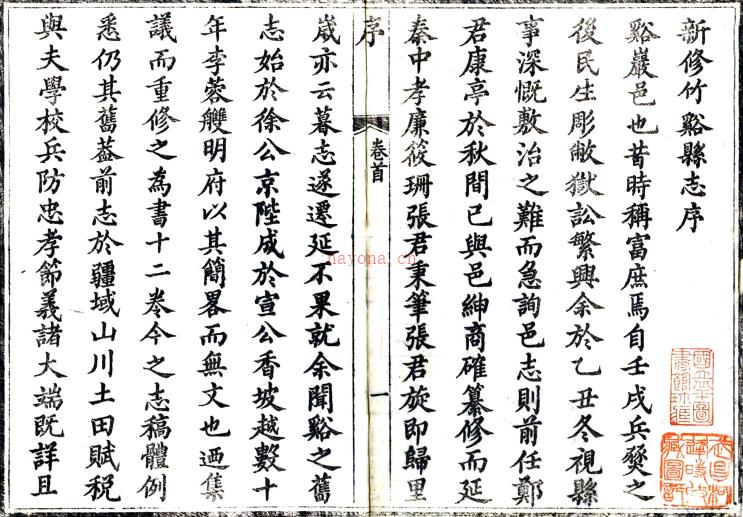 新修竹谿縣志序
谿巖邑也昔時稱富庶焉自壬戌兵燹之
後民生彫敝獄訟繁興余於乙丑冬視縣
事深慨敷治之難而急詢邑志則前任鄭
君康亭於秋間已與邑紳商確纂修而延
秦中孝廉筱珊張君秉筆張君旋即歸里
序
卷首
一
嵗亦云暮志遂遷延不果就余聞谿之舊
志始於徐公京陛成於宣公香坡越數十
年李蓉艭明府以其簡畧而無文也迺集
議而重修之為書十二卷今之志稿體例
悉仍其舊葢前志於疆域山川土田賦税
與夫學校兵防忠孝節義諸大端既詳且
nayona.cn